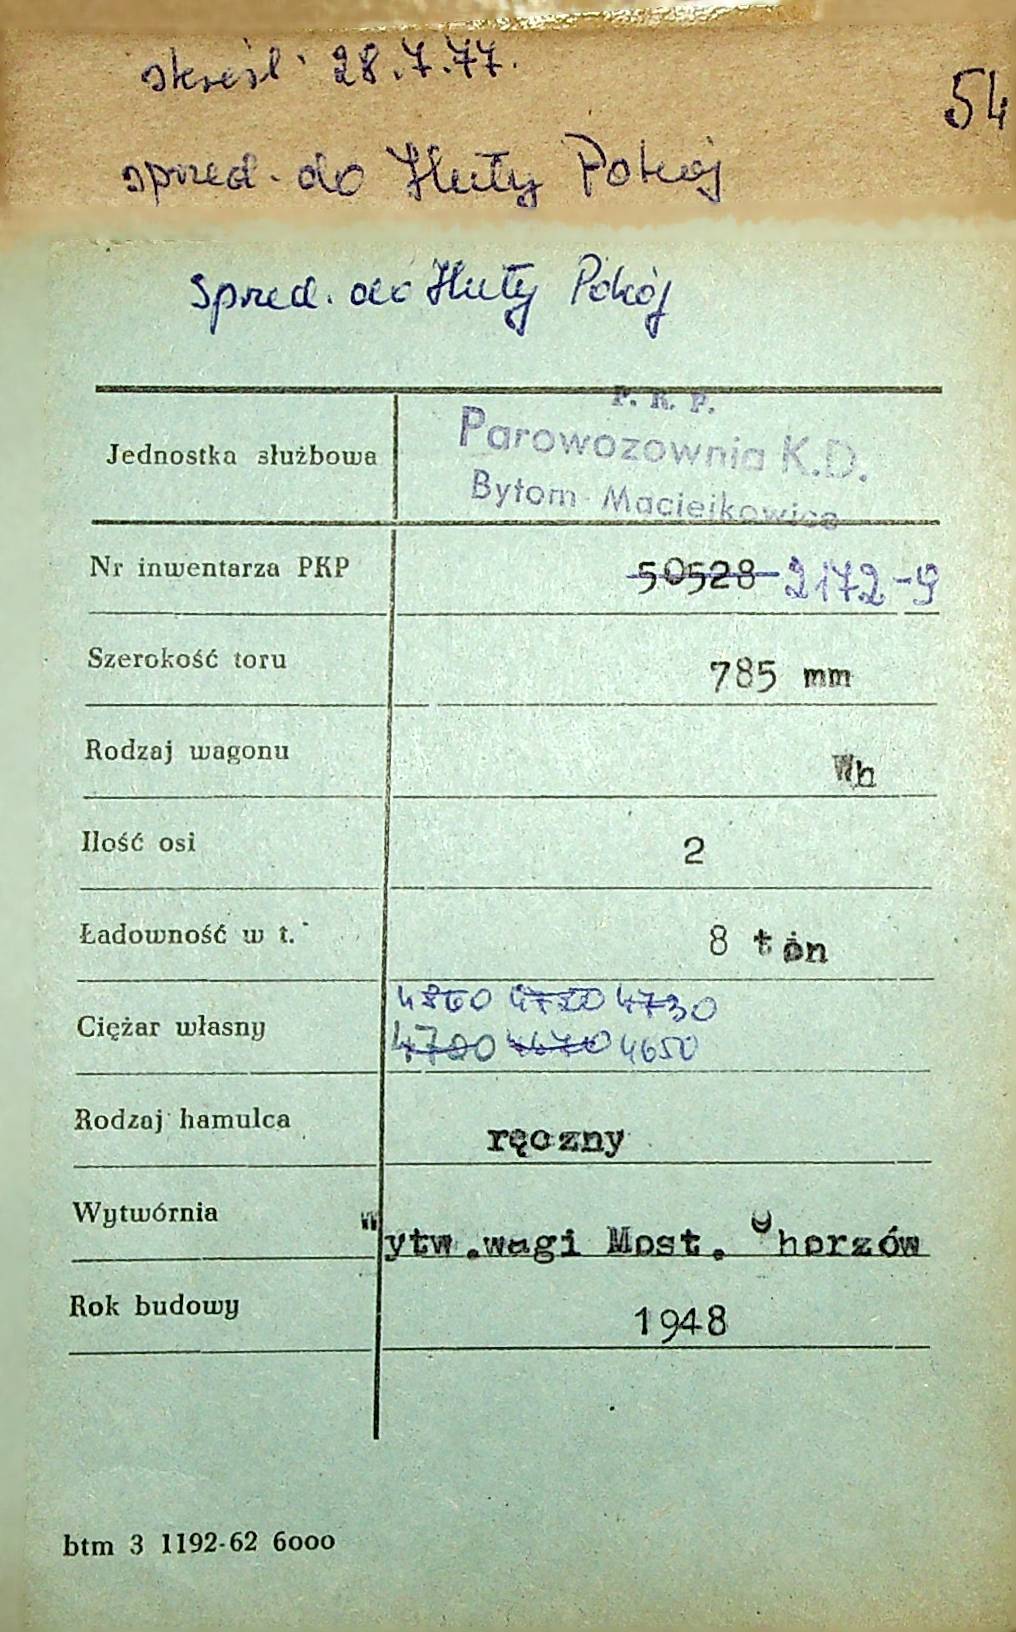 skreśl. 28.7.77.
54
sprzed. do Huty Pokój
Sprzed. do Huty Pokój
P. K. P.
Jednostka służbowa Parowozownia K.D.
Bytom Maciejkowice
Nr inwentarza PKP 50528 2172-9
Szerokość toru 785 mm
Rodzaj wagonu Wh
Ilość osi 2
Ładowność w t. 8 ton
4860 4730
Ciężar własny
4700 4670 4650
Rodzaj hamulca ręczny
Wytwórnia Wytw.wagi Most. Chorzów
Rok budowy 1948
btm 3 1192-62 6000